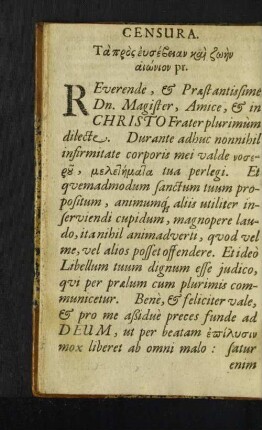 CENSURA.
Τὰ πρὸς ἐυσέβειαν καὶ ζωὴν
αιώνιον pr.
REverende, & Præstantissime
Dn. Magister, Amice, & in
CHRISTO Frater plurimùm
dilecte. Durante adhuc nonnihil
infirmitate corporis mei valde νοσε-
ρῦ, μελετήματα tua perlegi. Et
qvemadmodum sanctum tuum pro-
positum, animumq; aliis utiliter in-
serviendi cupidum, magnopere lau-
do, ita nihil animadverti, qvod vel
me, vel alios posset offendere. Et ideò
Libellum tuum dignum esse judico,
qvi per prælum cum plurimis com-
municetur. Benè, & feliciter vale,
& pro me aßiduè preces funde ad
DEUM, ut per beatam ἐπίλυσιν
mox liberet ab omni malo: satur
enim